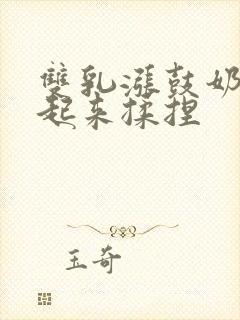 雙乳漲鼓奶
起来揉捏
玉奇